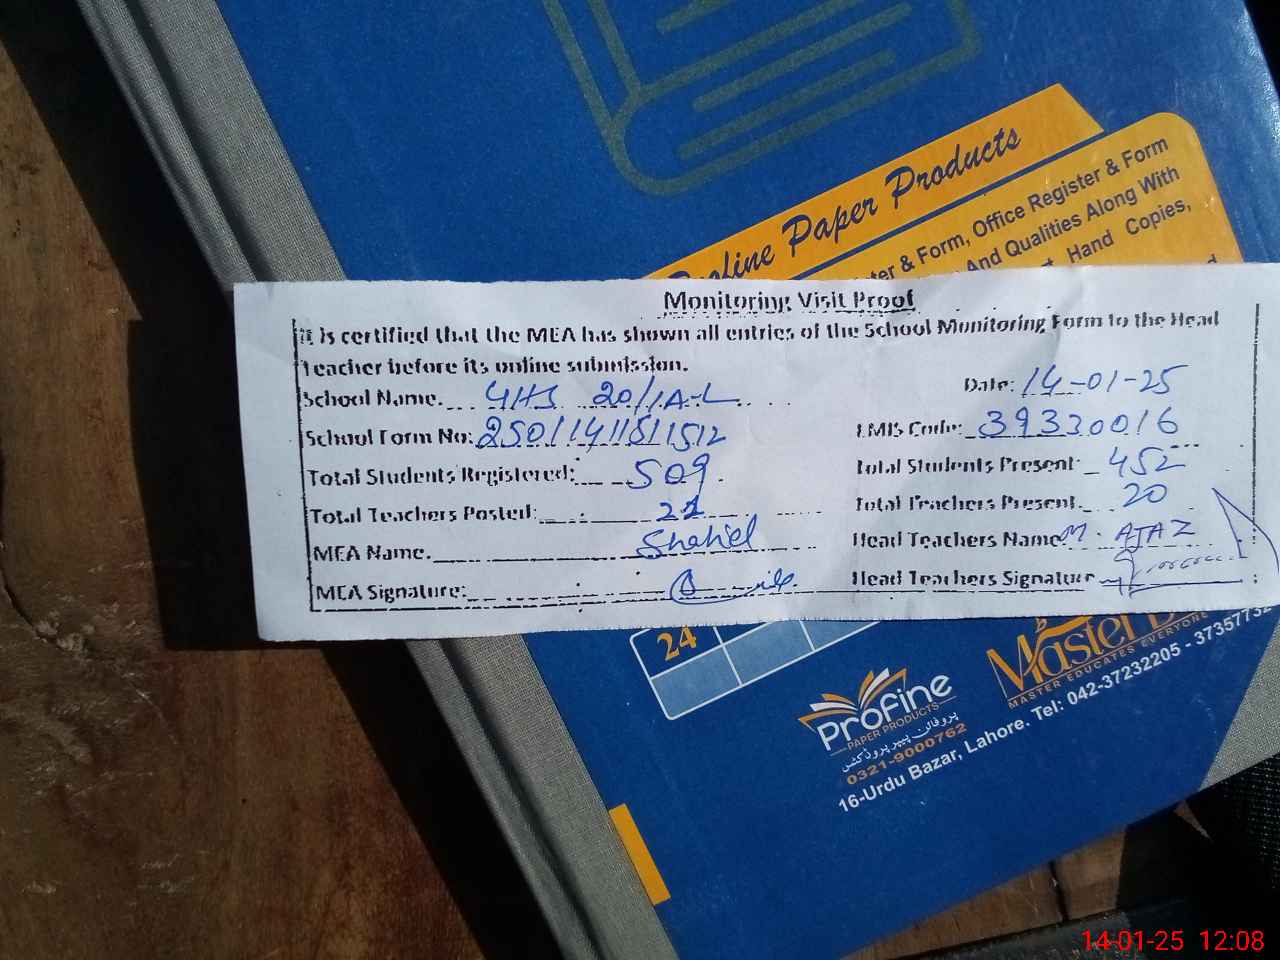 Profine Paper Products
ter & Form, Office Register & Form
And Qualities Along With
Hand Copies,
Monitoring Visit Proof
It is certified that the MEA has shown all entries of the School Monitoring Form to the Head
Teacher before its online submission.
School Name. GHS 20/1A-L Date: 14-01-25
School Form No: EMIS Code: 39330016
Total Students Registered: 509 Total Students Present: 452
Total Teachers Posted: Total Teachers Present. 20
MEA Name. Shahid Head Teachers Name: M. AJAZ
MEA Signature: Head Teachers Signature
24
Master
MASTER EDUCATES EVERYONE
Profine
PAPER PRODUCTS
پروفائن پیپر پروڈکٹس
0321-9000762
16-Urdu Bazar, Lahore. Tel: 042-37232205 - 37357732
14-01-25 12:08